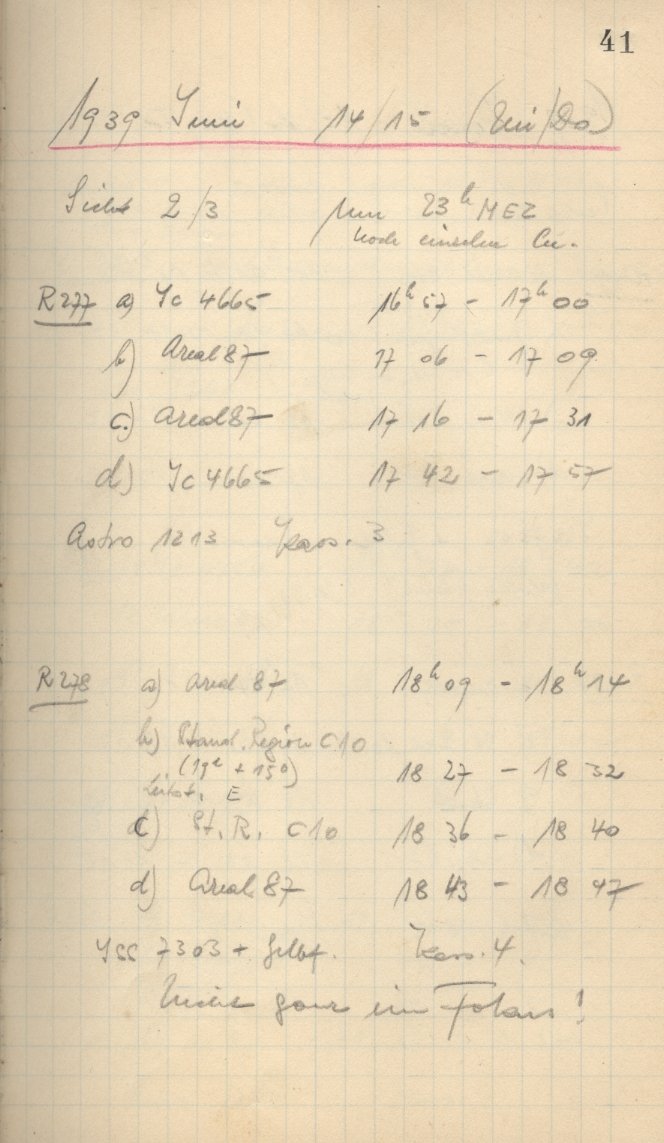 41
1939 Juni 14/15 (Mi/Do)
Sicht 2/3 Um 23h MEZ
noch einzelne Cu.
R277 a) Jc 4665 16h 57 - 17h 00
b) Areal 87 17 06 - 17 09
c) Areal 87 17 16 - 17 31
d) Jc 4665 17 42 - 17 57
Astro 1213 Kass. 3
R278 a) Areal 87 18h 09 - 18h 14
b) Stand. Region C10
(19h + 15°) 18 27 - 18 32
Leitst. E
c) St. R. C10 18 36 - 18 40
d) Areal 87 18 43 - 18 47
JSS 7303 + Gelbf. Kass. 4.
Nicht ganz im Fokus!